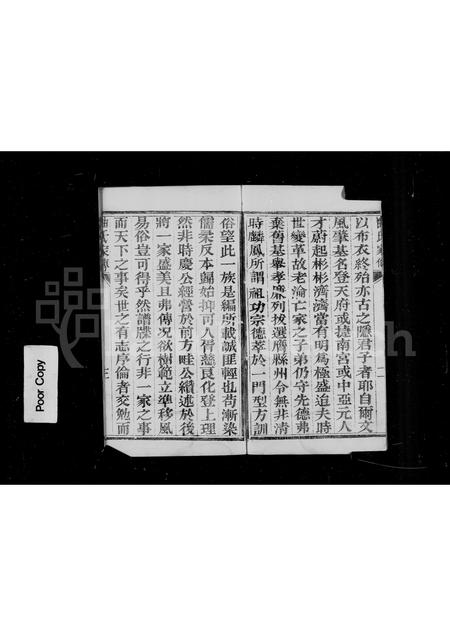 以布衣終殆亦古之隱君子者耶自爾文
風肇基名登天府或捷南宮或中亞元人
才蔚起彬彬濟濟當有明為極盛迨夫時
世變革故老淪亡家之子弟仍守先德弗
棄舊基舉孝廉列拔選膺縣州令無非清
時麟鳳所謂祖功宗德萃於一門型方訓
俗望此一族是編所載誠匪輕也苟漸染
儒柔反本歸始抑可人胥慈良化登上理
然非時慶公經營於前方畦公纘述於後
將一家盛美且弗傳況欲樹範立準移風
易俗豈可得乎然譜牒之行非一家之事
而天下之事矣世之有志序倫者交勉而
二
三
Poor Copy